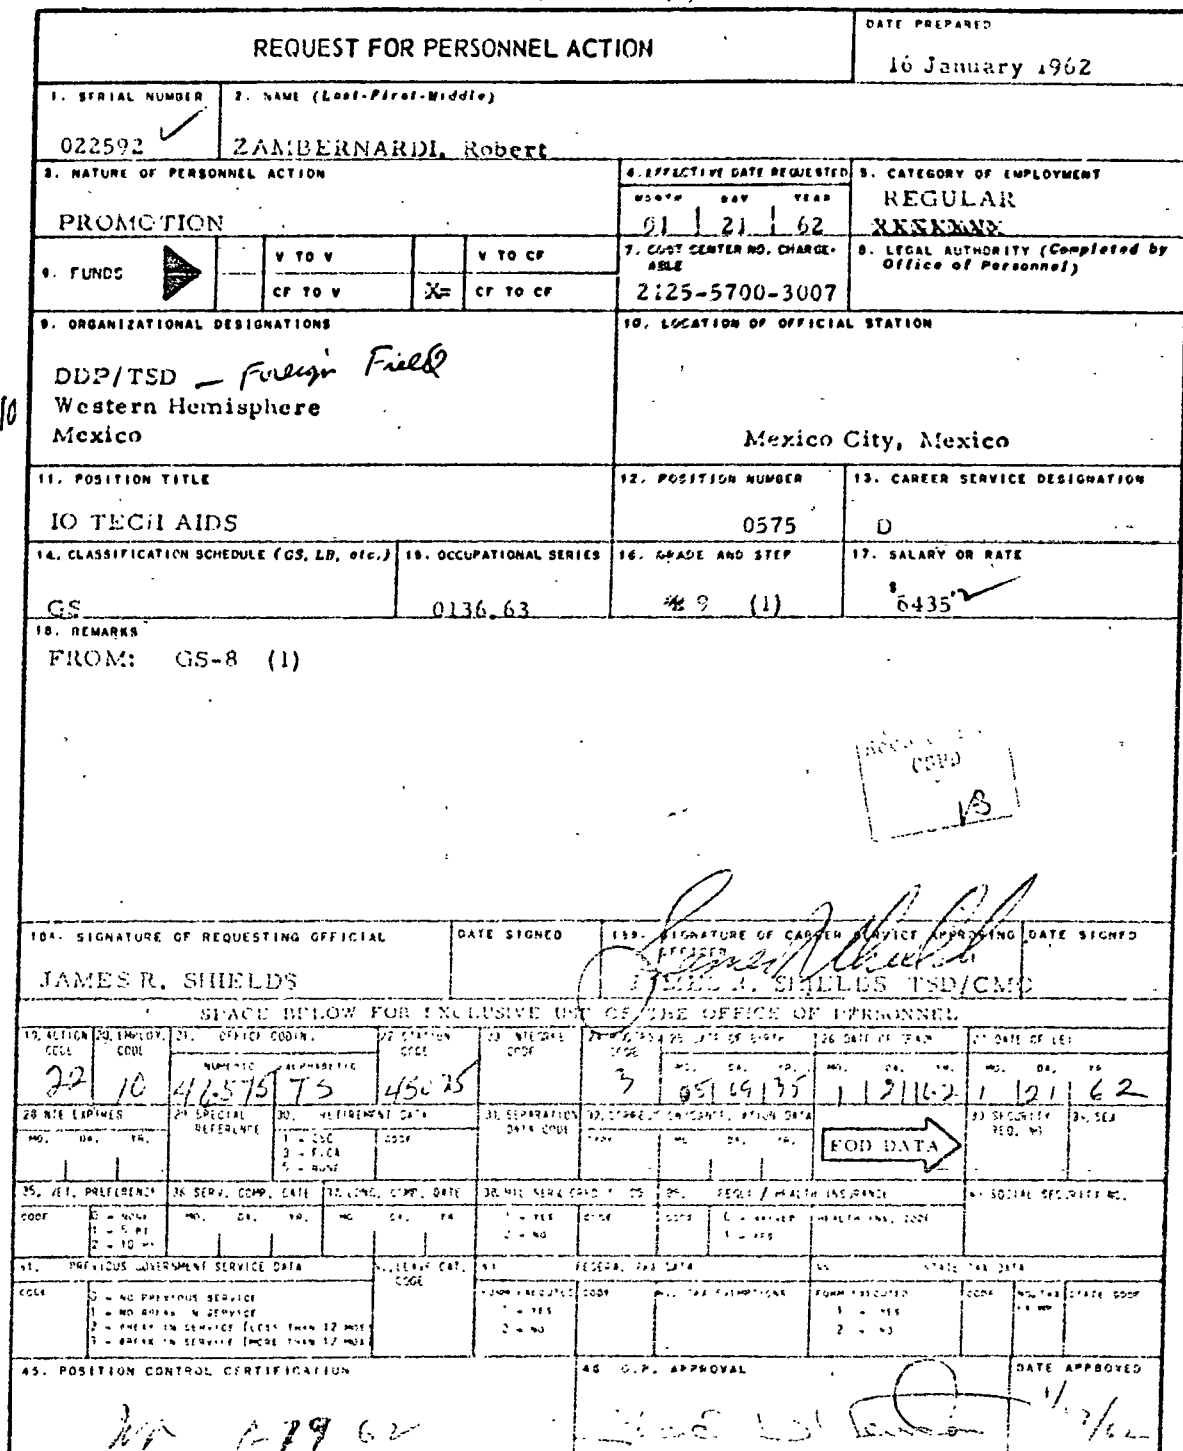 REQUEST FOR PERSONNEL ACTION
DATE PREPARED
16 January 1962
1. SERIAL NUMBER
022592
2. NAME (Last-First-Middle)
ZAMBERNARDI, Robert
3. NATURE OF PERSONNEL ACTION
PROMOTION
4. EFFECTIVE DATE REQUESTED
MONTH DAY YEAR
01 21 62
5. CATEGORY OF EMPLOYMENT
REGULAR
6. FUNDS
V TO V
V TO CF
CF TO V
X= CF TO CF
7. COST CENTER NO. CHARGE-
ABLE
2125-5700-3007
8. LEGAL AUTHORITY (Completed by
Office of Personnel)
9. ORGANIZATIONAL DESIGNATIONS
DDP/TSD — Foreign Field
Western Hemisphere
Mexico
10. LOCATION OF OFFICIAL STATION
Mexico City, Mexico
10
11. POSITION TITLE
IO TECH AIDS
12. POSITION NUMBER
0575
13. CAREER SERVICE DESIGNATION
D
14. CLASSIFICATION SCHEDULE (GS, LB, etc.)
GS
15. OCCUPATIONAL SERIES
0136.63
16. GRADE AND STEP
9 (1)
17. SALARY OR RATE
$ 6435
18. REMARKS
FROM: GS-8 (1)
CSPD
18A. SIGNATURE OF REQUESTING OFFICIAL
JAMES R. SHIELDS
DATE SIGNED
18B. SIGNATURE OF CAREER SERVICE APPROVING
OFFICER
JAMES R. SHIELDS TSD/CMO
DATE SIGNED
SPACE BELOW FOR EXCLUSIVE USE OF THE OFFICE OF PERSONNEL
19. ACTION
CODE
22
20. EMPLOY.
CODE
10
21. OFFICE CODING
NUMERIC ALPHABETIC
46575 TS
22. STATION
CODE
45075
23. INTEGREE
CODE
3
25. DATE OF BIRTH
MO. DA. YR.
26. DATE OF GRADE
MO. DA. YR.
1 21 62
27. DATE OF LEI
MO. DA. YR.
1 21 62
28. NTE EXPIRES
MO. DA. YR.
29. SPECIAL
REFERENCE
30. RETIREMENT DATA
1 - CSC
3 - FICA
5 - NONE
CODE
31. SEPARATION
DATA CODE
EOD DATA
33. SECURITY
REQ. NO.
34. SEX
35. VET. PREFERENCE
CODE
0 - NONE
1 - 5 PT
2 - 10 PT
36. SERV. COMP. DATE
MO. DA. YR.
37. LONG. COMP. DATE
MO. DA. YR.
1 - YES
2 - NO
CODE
39. FEGLI / HEALTH INSURANCE
CODE
0 - WAIVER
1 - YES
HEALTH INS. CODE
40. SOCIAL SECURITY NO.
41. PREVIOUS GOVERNMENT SERVICE DATA
CODE
0 - NO PREVIOUS SERVICE
1 - NO BREAK IN SERVICE
2 - BREAK IN SERVICE (LESS THAN 12 MOS)
3 - BREAK IN SERVICE (MORE THAN 12 MOS)
42. LEAVE CAT.
CODE
43. FEDERAL TAX DATA
FORM EXECUTED
1 - YES
2 - NO
CODE
NO. TAX EXEMPTIONS
44. STATE TAX DATA
FORM EXECUTED
1 - YES
2 - NO
CODE
STATE CODE
45. POSITION CONTROL CERTIFICATION
62
46. O.P. APPROVAL
DATE APPROVED